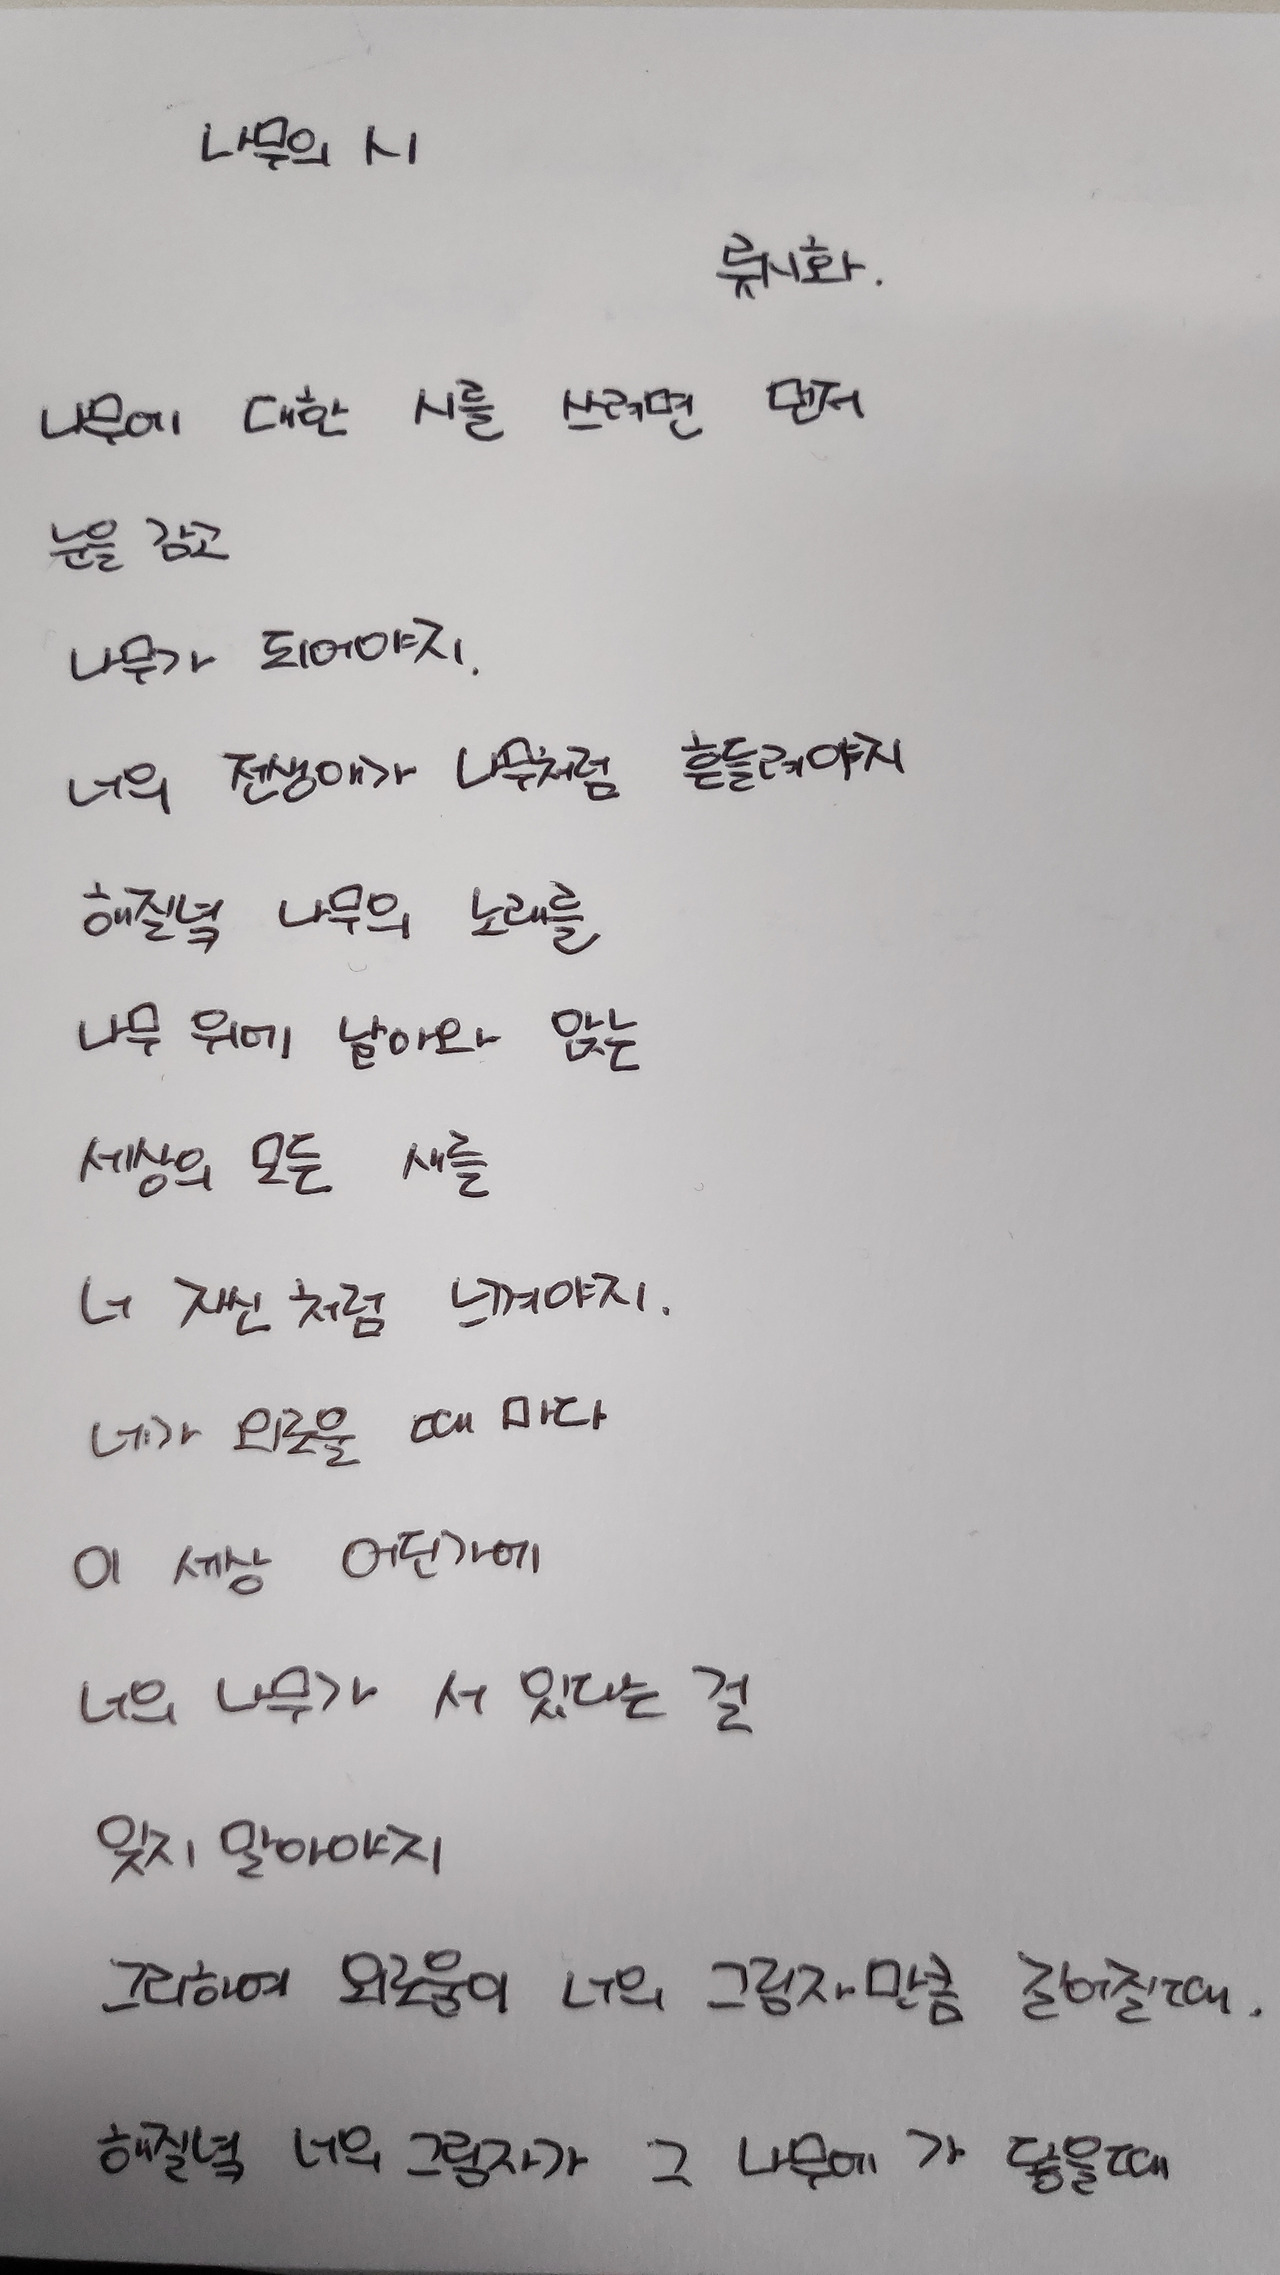 나무의 시
류시화.
나무에 대한 시를 쓰려면 먼저
눈을 감고
나무가 되어야지.
너의 전생애가 나무처럼 흔들려야지
해질녘 나무의 노래를
나무 위에 날아와 앉는
세상의 모든 새를
너 자신처럼 느껴야지.
네가 외로울 때 마다
이 세상 어딘가에
너의 나무가 서 있다는 걸
잊지 말아야지
그리하여 외로움이 너의 그림자만큼 길어질때.
해질녘 너의 그림자가 그 나무에 가 닿을때